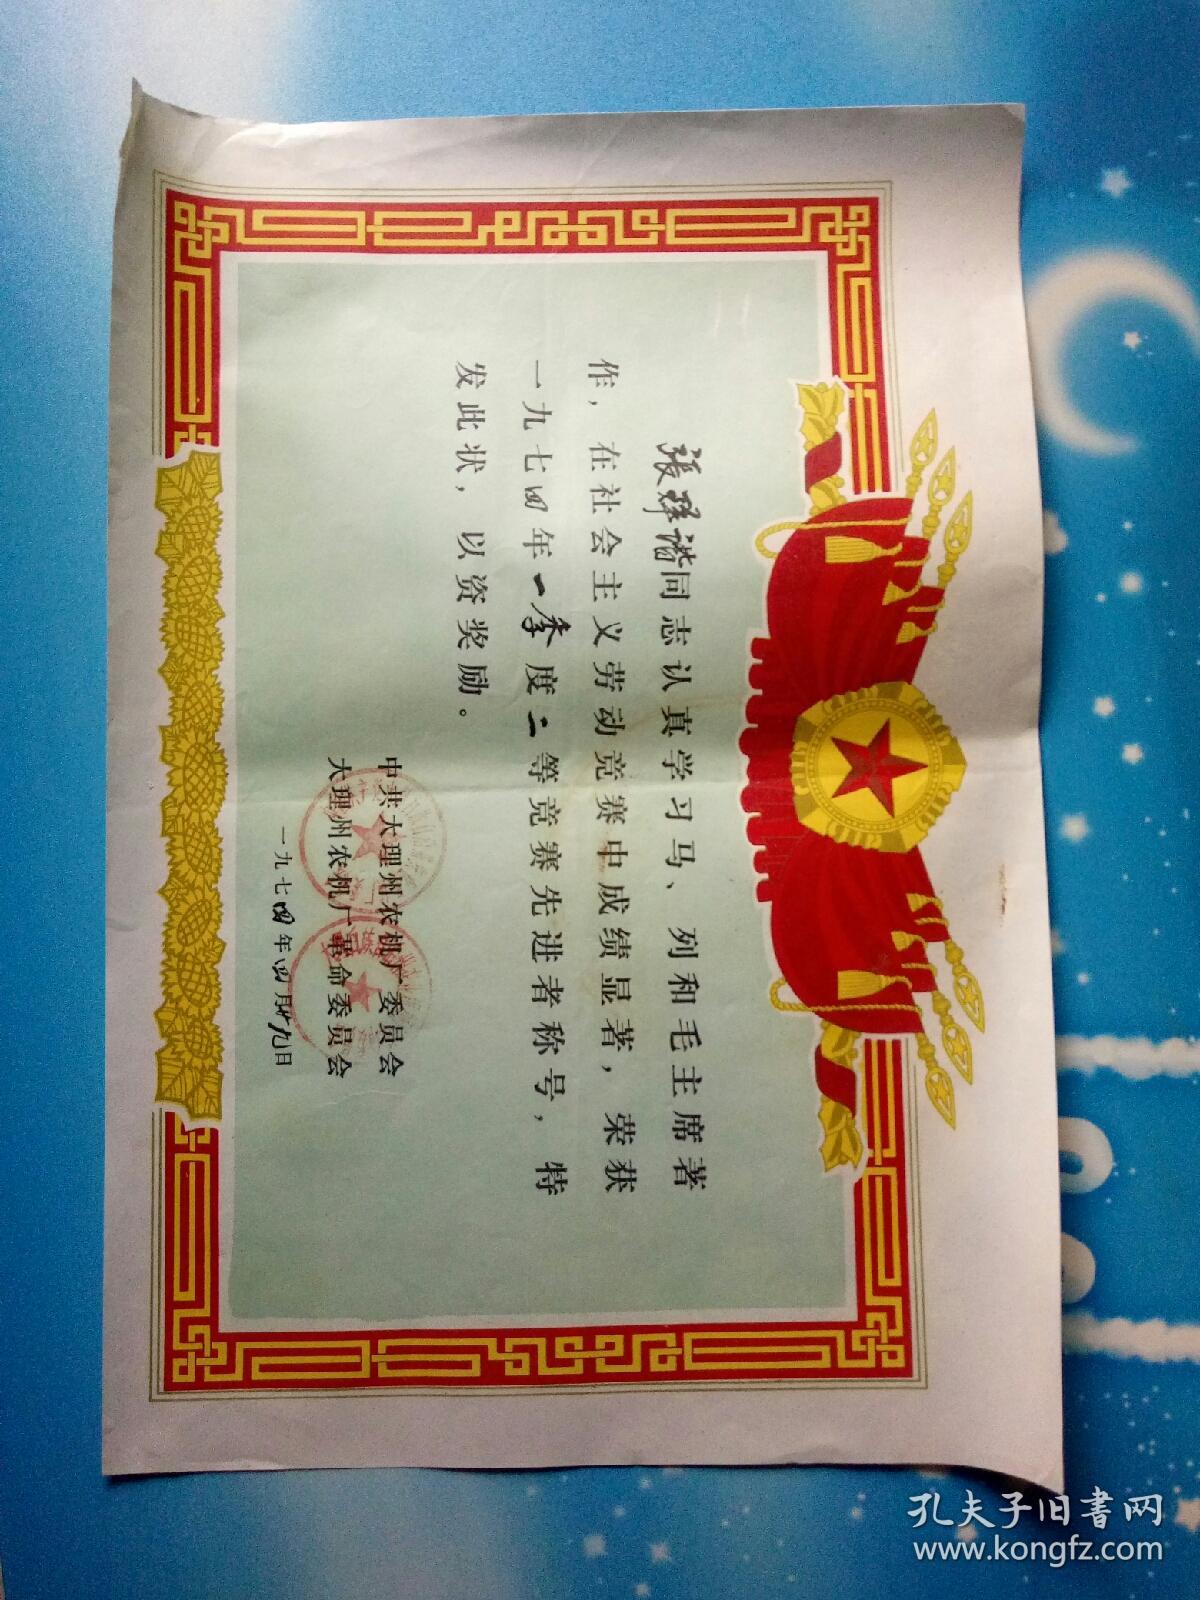 張群谐同志认真学习马、列和毛主席著
作，在社会主义劳动竞赛中成绩显著，荣获
一九七四年一季度二等竞赛先进者称号，特
发此状，以资奖励。
中共大理州农机厂委员会
大理州农机厂革命委员会
一九七四年四月廿九日
孔夫子旧书网
www.kongfz.com